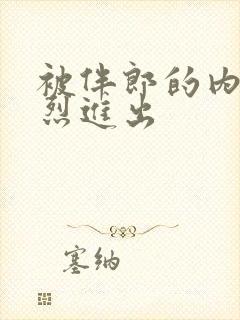 被伴郎的内
烈进出
塞纳